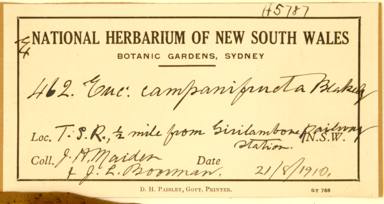 H5787
NATIONAL HERBARIUM OF NEW SOUTH WALES
BOTANIC GARDENS, SYDNEY
462. Euc. campanifructa Blakely
Loc. T.S.R., ½ mile from Girilambone Railway
Station. N.S.W.
Coll. J. H. Maiden Date
& J. L. Boorman. 21/8/1910.
D. H. PAISLEY, GOVT. PRINTER. ST 788